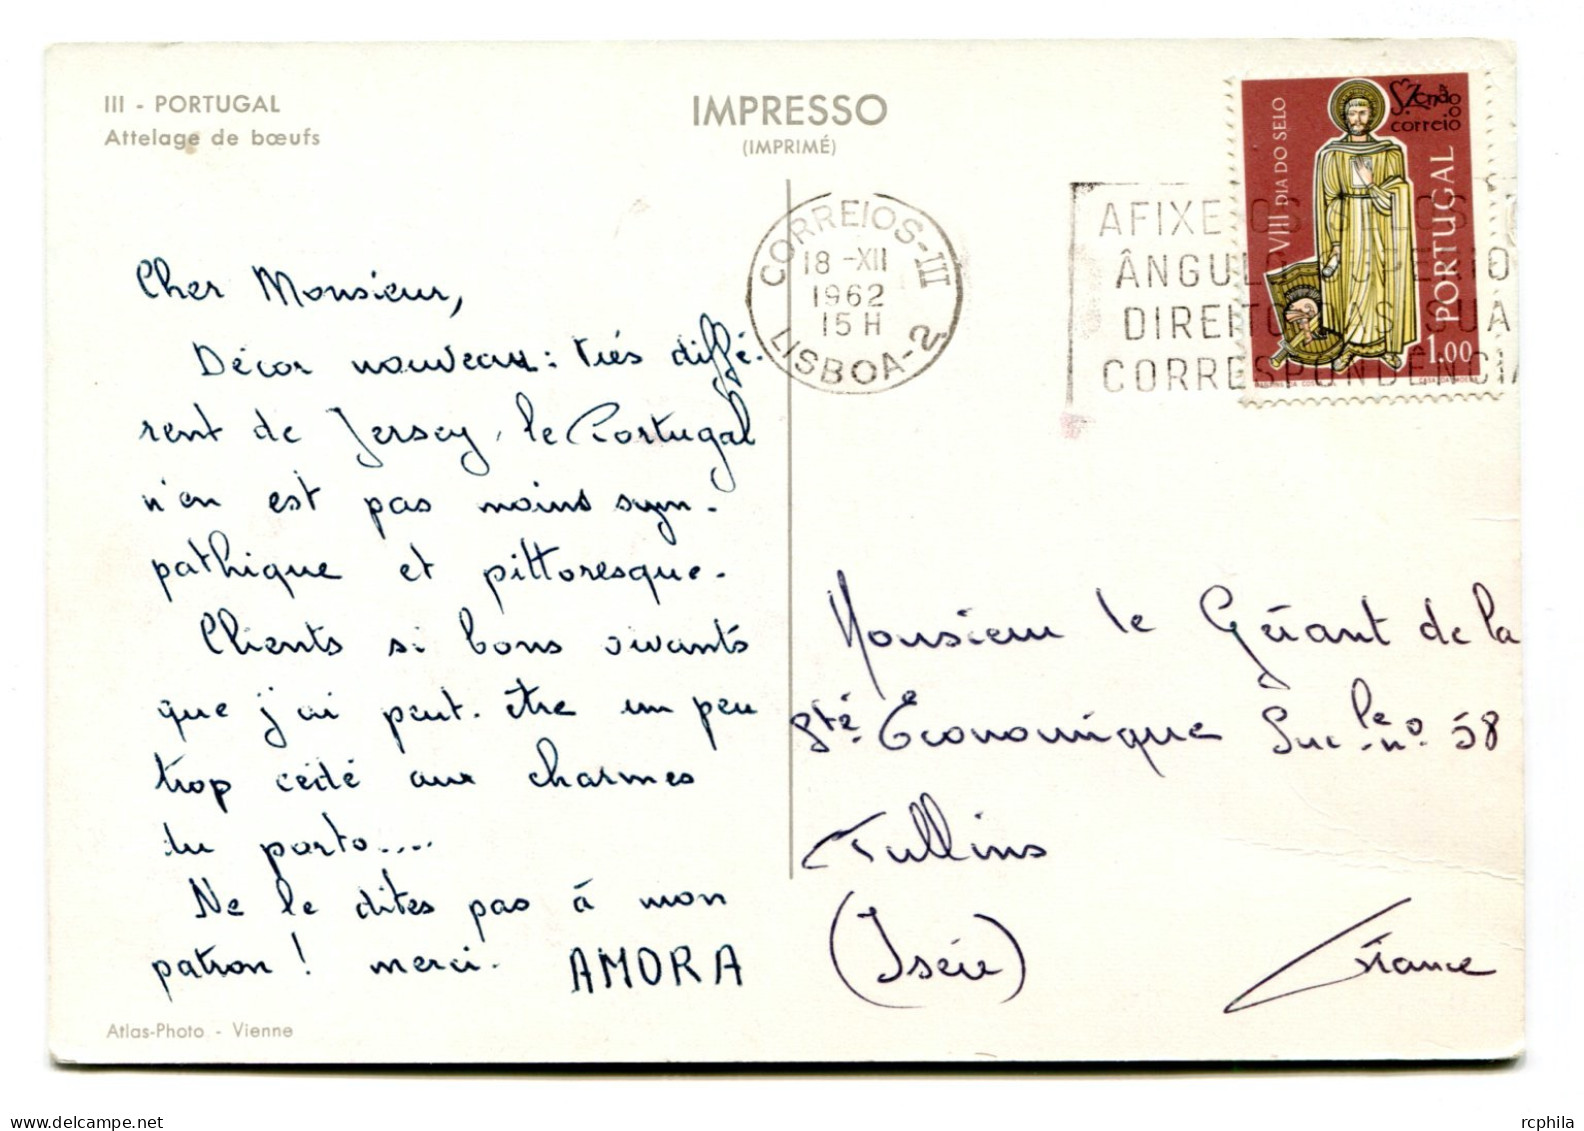 III - PORTUGAL
Attelage de bœufs
IMPRESSO
(IMPRIMÉ)
CORREIOS-III
18 -XII
1962
15 H
LISBOA-2
AFIXE OS SELOS
ÂNGULO SUPERIO
DIREITO DAS SUA
CORRESPONDÊNCIA
VIII DIA DO SELO
S. Zenão
o
correio
PORTUGAL
1.00
Cher Monsieur,
Décor nouveau : très diffé-
rent de Jersey, le Portugal
n'en est pas moins sym-
pathique et pittoresque.
Clients si bons vivants
que j'ai peut-être un peu
trop cédé aux charmes
du porto....
Ne le dites pas à mon
patron ! merci. AMORA
Atlas-Photo - Vienne
Monsieur le Gérant de la
Sté Economique Suc le no. 58
Tullins
(Isère)
France
rcphila